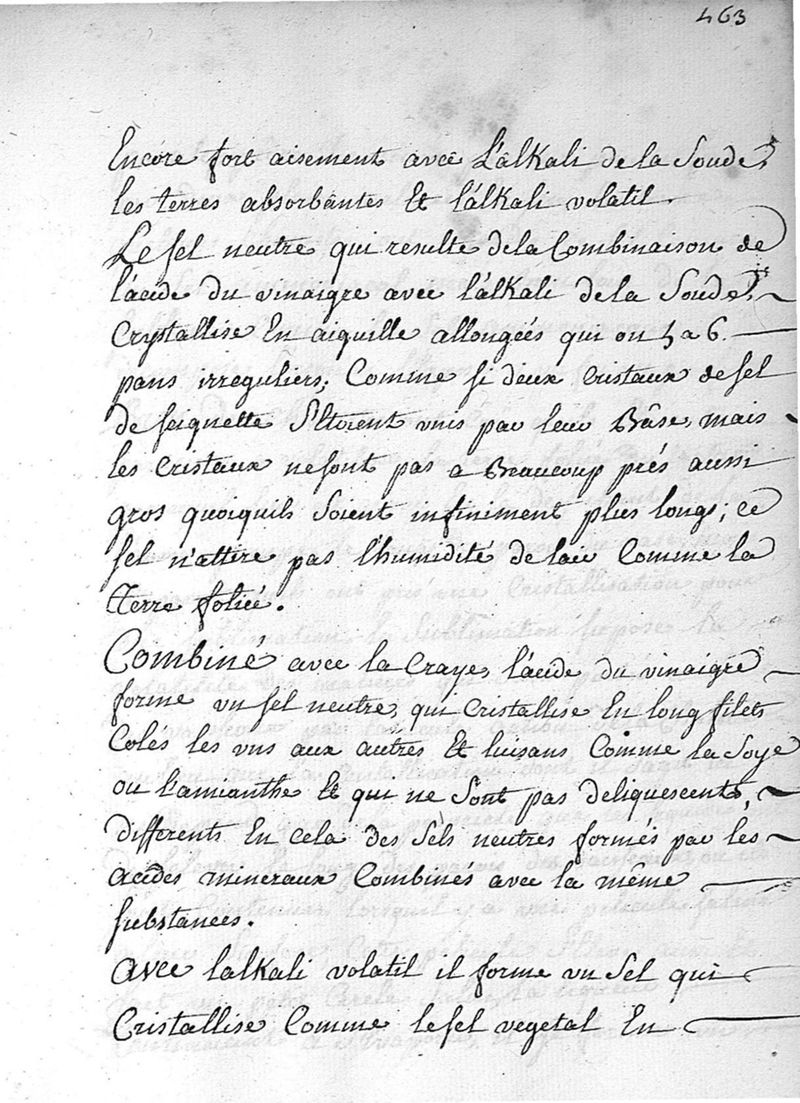 463
Encore fort aisement avec L'alkali de la Soude,
les terres absorbantes Et l'alkali volatil.
Le sel neutre qui resulte de la Combinaison de
l'acide du vinaigre avec l'alkali de la Soude,
Crystallise En aiquille allongées qui on 5 a 6.
pans irreguliers; Comme si deux Cristaux de sel
de seignette Etoient unis par leur Bâse, mais
les Cristaux ne sont pas a Beaucoup prés aussi
gros quoiquils Soient infiniment plus longs; ce
sel n'attire pas l'humidité de lair Comme la
Terre foliée.
Combiné avec la Craye, l'acide du vinaigre
forme vn sel neutre, qui Cristallise En long filets
Colés les vns aux autres Et luisans Comme la Soye
ou l'amianthe Et qui ne Sont pas deliquescents,
differents En cela des Sèls neutres formés par les
acides mineraux Combinés avec la même
substances.
Avec lalkali volatil il forme vn Sel qui
Cristallise Comme le sel vegetal En